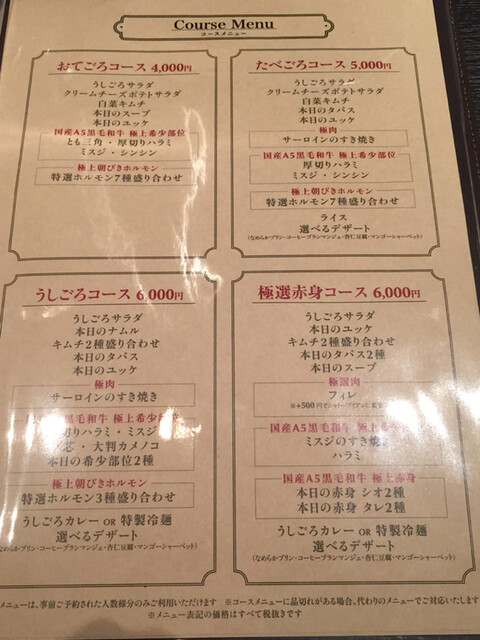 Course Menu
コースメニュー
おてごろコース 4,000円
うしごろサラダ
クリームチーズポテトサラダ
白菜キムチ
本日のスープ
本日のユッケ
国産A5黒毛和牛 極上希少部位
とも三角・厚切りハラミ
ミスジ・シンシン
極上朝びきホルモン
特選ホルモン7種盛り合わせ
たべごろコース 5,000円
うしごろサラダ
クリームチーズポテトサラダ
白菜キムチ
本日のタパス
本日のユッケ
極肉
サーロインのすき焼き
国産A5黒毛和牛 極上希少部位
厚切りハラミ
ミスジ・シンシン
極上朝びきホルモン
特選ホルモン7種盛り合わせ
ライス
選べるデザート
(なめらかプリン・コーヒーブランマンジェ・杏仁豆腐・マンゴーシャーベット)
うしごろコース 6,000円
うしごろサラダ
本日のナムル
キムチ2種盛り合わせ
本日のタパス
本日のユッケ
極肉
サーロインのすき焼き
黒毛和牛 極上希少
切りハラミ・ミスジ
芯・大判カメノコ
本日の希少部位2種
極上朝びきホルモン
特選ホルモン3種盛り合わせ
うしごろカレー OR 特製冷麺
選べるデザート
(なめらかプリン・コーヒーブランマンジェ・杏仁豆腐・マンゴーシャーベット)
極選赤身コース 6,000円
うしごろサラダ
本日のユッケ
キムチ2種盛り合わせ
本日のタパス2種
本日のスープ
極選肉
フィレ
※+500円でシャトーブリアンに
国産A5黒毛和牛 極上
ミスジのすき焼き
ハラミ
国産A5黒毛和牛 極上赤身
本日の赤身 シオ2種
本日の赤身 タレ2種
うしごろカレー OR 特製冷麺
選べるデザート
(なめらかプリン・コーヒーブランマンジェ・杏仁豆腐・マンゴーシャーベット)
メニューは、事前ご予約された人数様分のみご利用いただけます ※コースメニューに品切れがある場合、代わりのメニューでご対応いたします
※メニュー表記の価格はすべて税抜きです